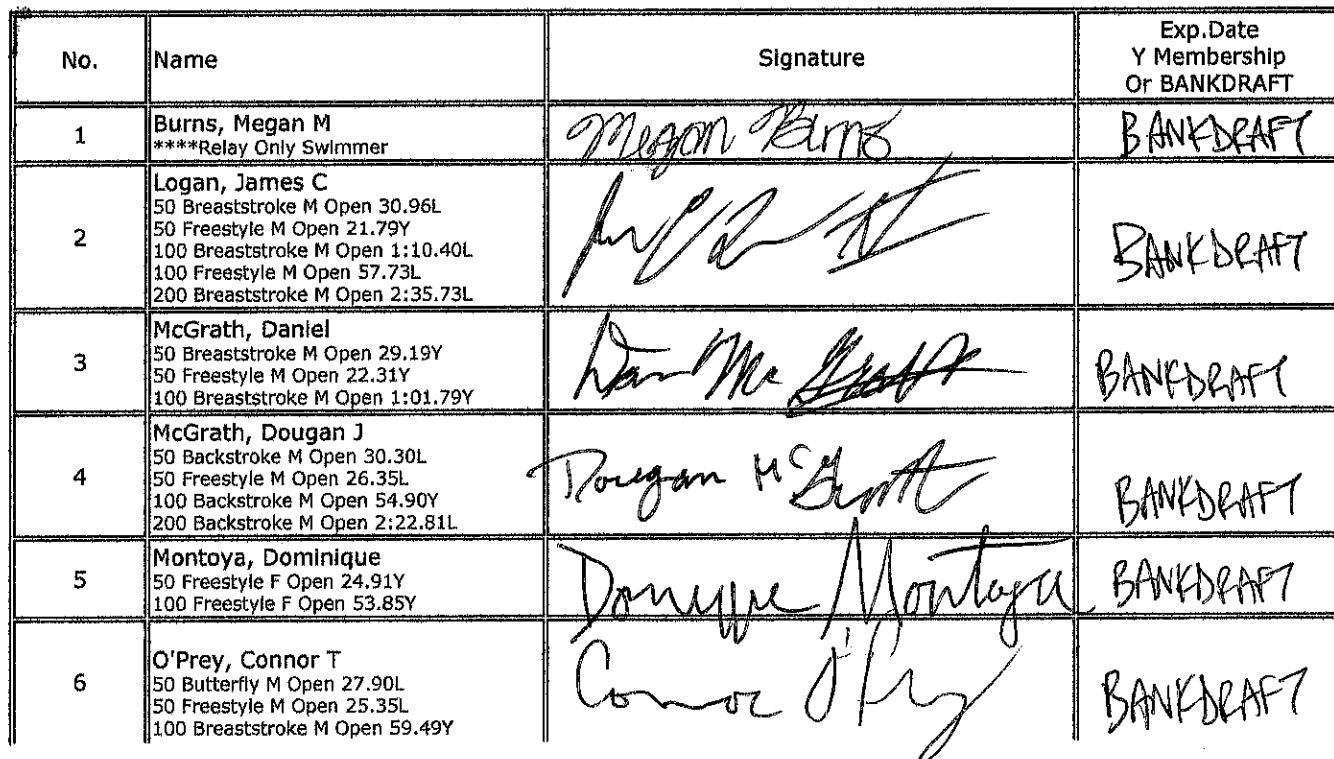 No.
Name
Signature
Exp.Date
Y Membership
Or BANKDRAFT
1
Burns, Megan M
****Relay Only Swimmer
Megan Burns
BANKDRAFT
2
Logan, James C
50 Breaststroke M Open 30.96L
50 Freestyle M Open 21.79Y
100 Breaststroke M Open 1:10.40L
100 Freestyle M Open 57.73L
200 Breaststroke M Open 2:35.73L
BANKDRAFT
3
McGrath, Daniel
50 Breaststroke M Open 29.19Y
50 Freestyle M Open 22.31Y
100 Breaststroke M Open 1:01.79Y
Dan McGrath
BANKDRAFT
4
McGrath, Dougan J
50 Backstroke M Open 30.30L
50 Freestyle M Open 26.35L
100 Backstroke M Open 54.90Y
200 Backstroke M Open 2:22.81L
Dougan McGrath
BANKDRAFT
5
Montoya, Dominique
50 Freestyle F Open 24.91Y
100 Freestyle F Open 53.85Y
Montoya
BANKDRAFT
6
O'Prey, Connor T
50 Butterfly M Open 27.90L
50 Freestyle M Open 25.35L
100 Breaststroke M Open 59.49Y
Connor O'Prey
BANKDRAFT